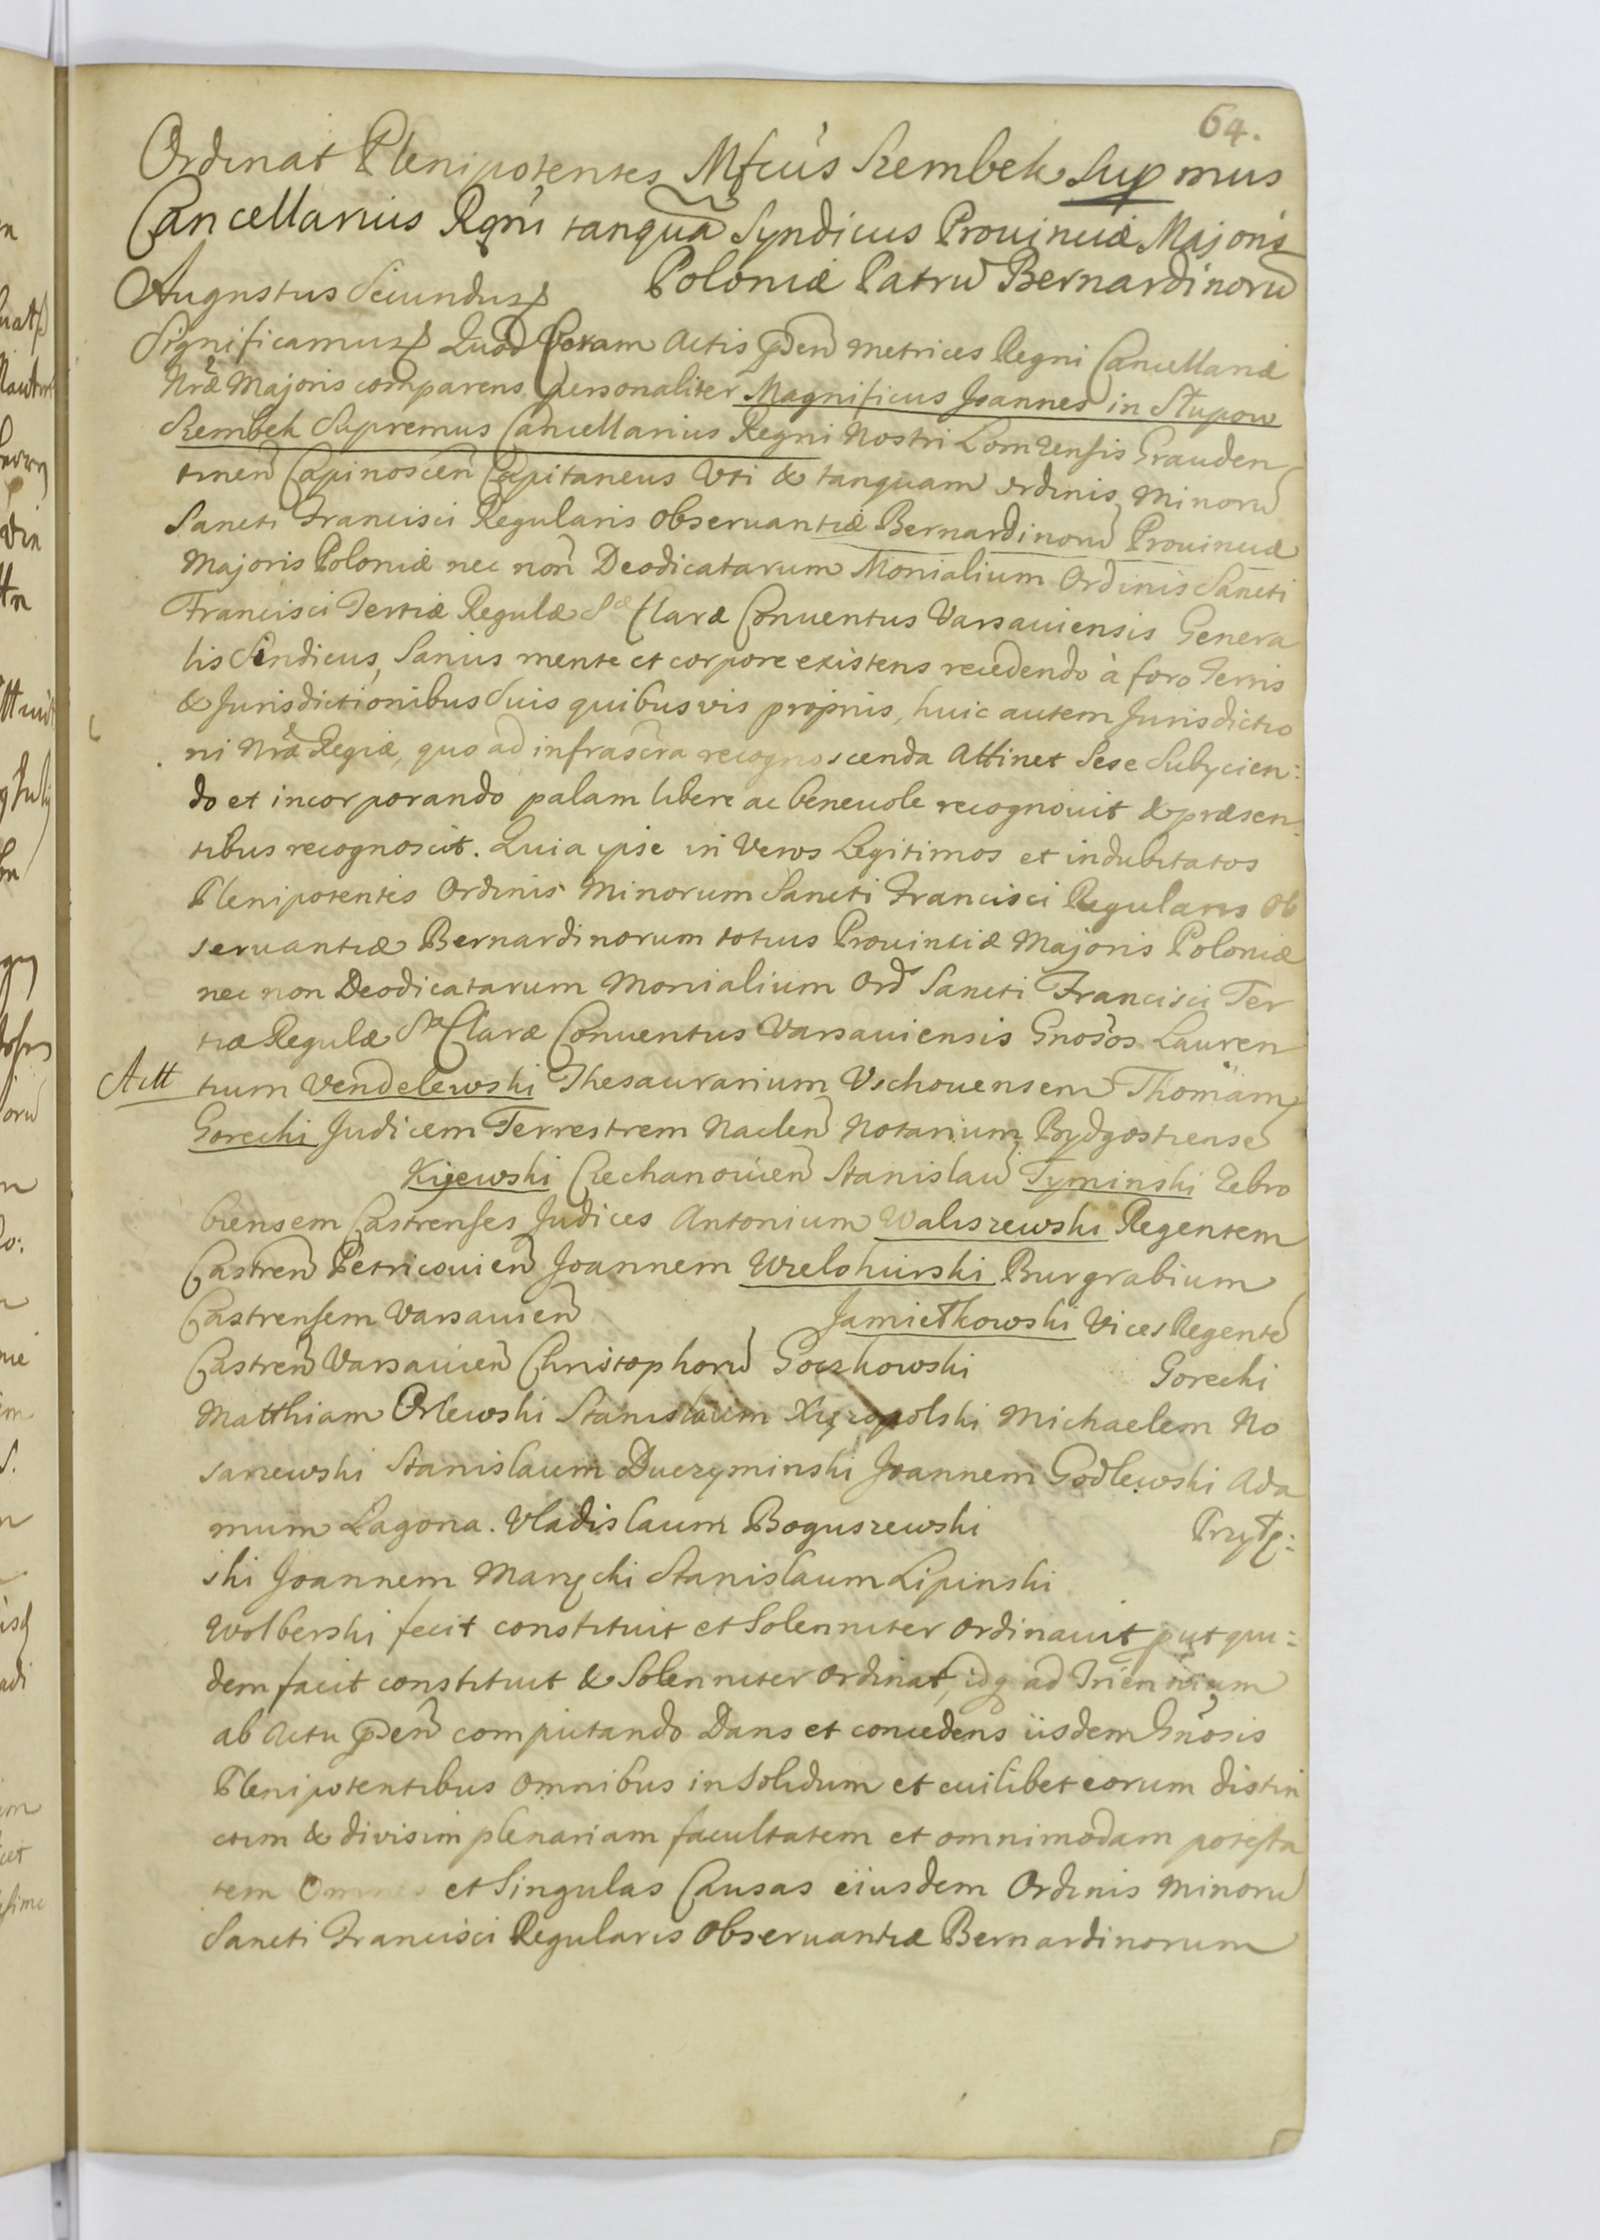 64.
Ordinat Plenipotentes Mfcus Szembek Supmus
Cancellarius Rgni tanquã Syndicus Prouinciæ Majoris
Poloniæ Patrũ Bernardinorũ
Augustus Secundus
Significamus Quod Coram Actis pñ Metrices Regni Cancellariæ
Nræ Majoris comparens personaliter Magnificus Joannes in Słupow
Szembek Supremus Cancellarius Regni Nostri Lomzensis Grauden
tinen Capinoscen Capitaneus Uti & tanquam ordinis Minorũ
Sancti Francisci Regularis Obseruantiæ Bernardinorũ Prouinciæ
Majoris Poloniæ nec non Deodicatarum Monialium Ordinis Sancti
Francisci Tertiæ Regulæ Sæ Claræ Conuentus Varsauiensis Genera
lis Sindicus, Sanus mente et corpore existens recedendo à foro Terris
& Jurisdictionibus Suis quibusvis proprijs, huic autem Jurisdictio
ni Nræ Regiæ, quo ad infrascra recognoscenda Attinet Sese Subycien:
do et incorporando palam libere ac beneuole recognouit & præsen:
tibus recognoscit. Quia ipse in Veros Legitimos et indubitatos
Plenipotentes Ordinis Minorum Sancti Francisci Regularis Ob
seruantiæ Bernardinorum totius Prouintiæ Majoris Poloniæ
nec non Deodicatarum Monialium Ord Sancti Francisci Ter
tiæ Regulæ Sæ Claræ Conuentus Varsauiensis Gnosos Lauren
Actt
tium Vendelewski Thesaurarium Vschouensem Thomam
Gorecki Judicem Terrestrem Naclen Notarium Bydgostiensẽ
Kijewski Ciechanouien Stanislaũ Tyminski Zebro
ciensem Castrenses Judices Antonium Waliszewski Regentem
Castren Petricouien Joannem Wielohurski Burgrabium
Castrensem Varsauien Jamiełkowski Vices Regentẽ
Castren Varsauien Christophorũ Goczkowski Gorecki
Matthiam Orlewski Stanislaum Xięzopolski Michaelem No
sarzewski Stanislaum Duczyminski Joannem Godlewski Ada
mum Lagona. Vladislaum Boguszewski Przyłę:
ski Joannem Maręcki Stanislaum Lipinski
Wolberski fecit constituit et Solenniter Ordinauit put qui:
dem facit constituit & Solenniter Ordinat, idq ad Triennium
ab Actu pñ computando Dans et concedens iisdem Gnosis
Plenipotentibus Omnibus in Solidum et cuilibet eorum distin
ctim & divisim plenariam facultatem et omnimodam potesta
tem Omnes et Singulas Causas eiusdem Ordinis Minorũ
Sancti Francisci Regularis Obseruantiæ Bernardinorum